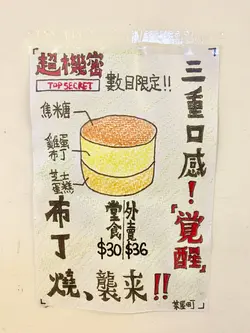 超機密
TOP SECRET
數目限定!!
焦糖
雞蛋布丁
芝士蛋糕
三重口感!
『覺醒』
堂食 $30
外賣 $36
布丁燒、襲来!!